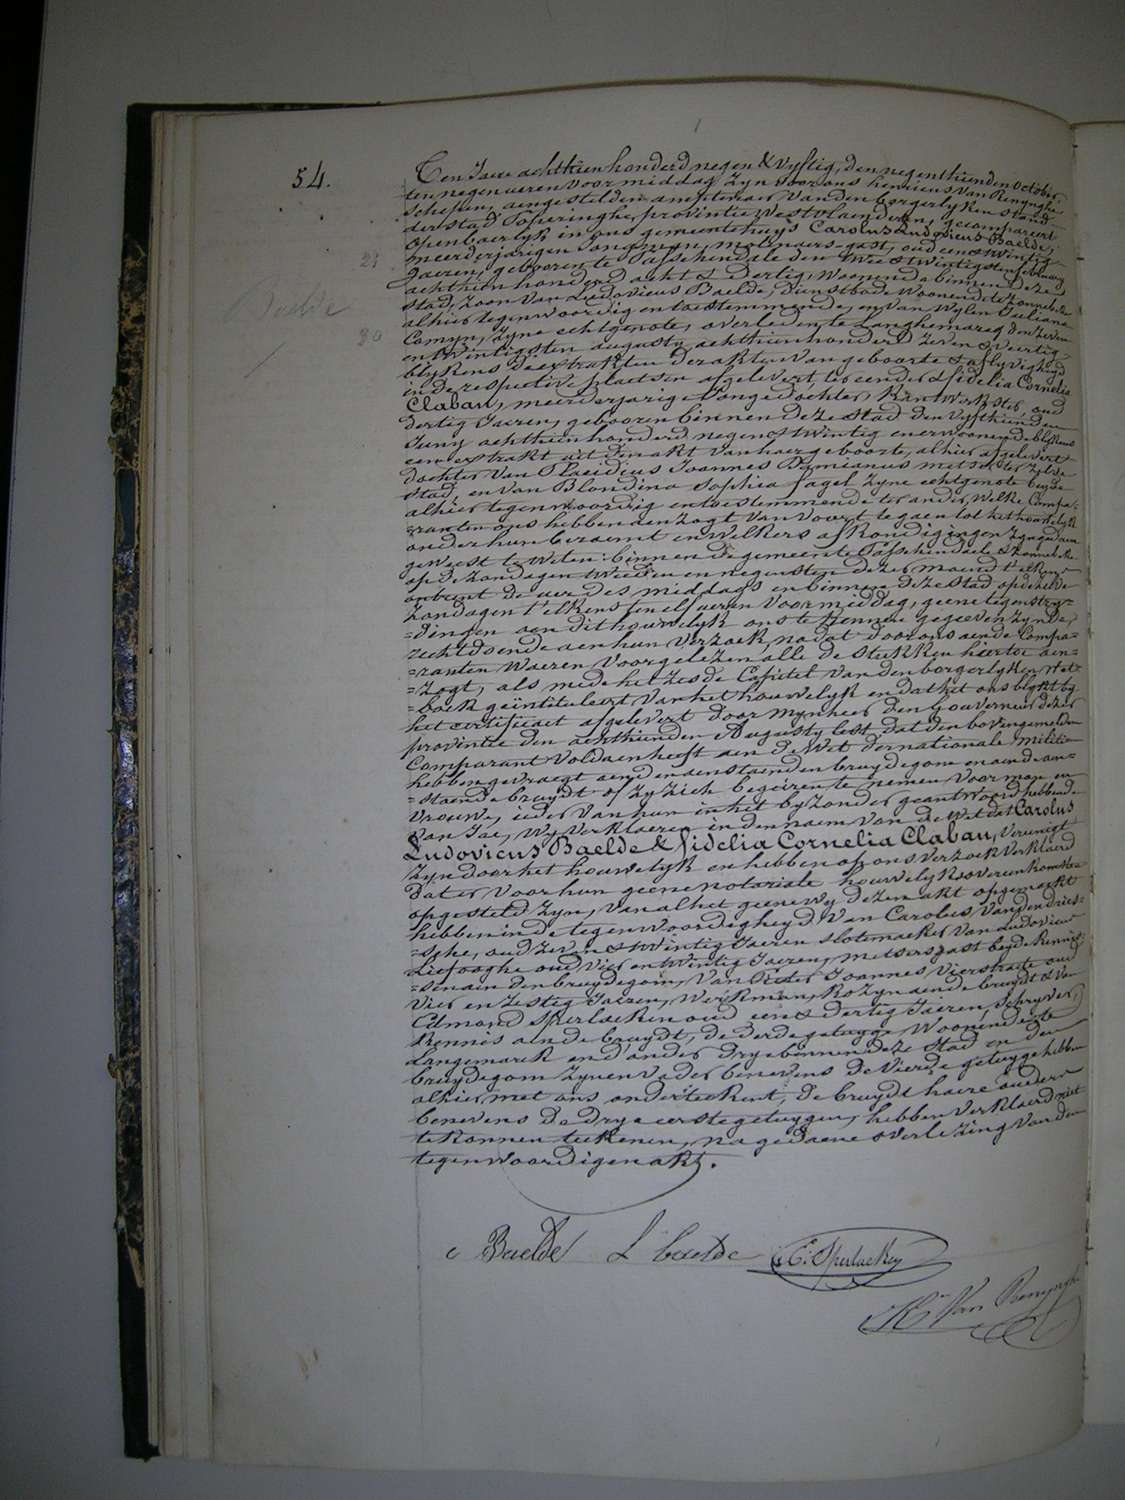 54.
Ten Jare achthienhonderd negen & vyftig, den negenthienden october,
ten negen ueren voormiddag zyn voor ons henricus Van Renynghe
Schepen, aengestelden amptenaer van den borgerlyken stand
der stad Poperinghe, provintie Westvlaenderen, gecompareert
openbaerlyk in ons gemeentehuys Carolus Ludovicus Baelde,
meerderjarigen Jongman, molenaers-gast, oud eenentwintig
21
Jaeren, geboren te Passchendale den twee&twintigsten february
achthienhonderd acht & dertig, woonende binnen deze
stad, zoon van Ludovicus Baelde, dienstbode woonende te Zonnebeke
Baelde
alhier tegenwoordig en toestemmende, en van wylen Juliana
Comyn, zyne echtgenote, overleden te Langhemarcq den zeven
30
en twintigsten augusty achthienhonderd zeven & veertig,
blykens de extrakten der akten van geboorte & aflyvigheyd
in de respective plaetsen afgelevert, ter eender & fidelia Cornelia
Clabau, meerderjarige Jonge dochter, Kantwerkster, oud
dertig Jaeren, geboren binnen deze stad den vyfthienden
Juny achthienhonderd negen & twintig en er woonende blykens
een extrakt uit den akt van haer geboorte, alhier afgelevert
dochter van Placidius Joannes Damianus metser ter zelve
stad, en van Blondina Sophia fagel zyne echtgenote beyde
alhier tegenwoordig en toestemmende ter ander, Welke Compa=
=ranten ons hebben aenzogt van voort te gaen tot het houwelyk
onder hun beraemt en welkers afkondigingen zyn gedaen
geweest te weten: binnen de gemeente Passchendaele & Zonnebeke
op de zondagen tweeden en negensten dezer maend t'elkens
omtrent de uer des middags en binnen deze stad op dezelfde
zondagen t'elkens ten elf ueren voormiddag, geene tegenstry=
=dingen aen dit houwelyk ons te kennen gegeven zynde,
rechtdoende aen hun verzoek, na dat door ons aen de Compa=
=ranten waeren voorgelezen alle de stukken hiertoe aen=
=zogt, als mede het zesde Capittel van den borgerlyken wet=
=boek geïntituleert Van het houwelyk en dat het ons blykt by
het certificaet afgelevert door mynheer den Gouverneur dezer
provintie den achthienden Augusty lest dat den bovengemelden
Comparant voldaen heeft aen de Wet der nationale militie
hebben gevraegt aen den aenstaenden bruydegom en aen de aen=
=staende bruydt of zy zich begeiren te nemen voor man en
vrouwe, ieder van hun in het byzonder geantwoord hebbende
van Jae, Wy verklaeren in den naem van de wet dat Carolus
Ludovicus Baelde & fidelia Cornelia Clabau, vereenigt
zyn door het houwelyk en hebben op ons verzoek verklaerd
dat er voor hun geene notariale houwelyksovereenkomsten
opgesteld zyn, van al het geene wy dezen akt opgemaekt
hebben in de tegenwoordigheyd van Carolus Vandendries=
=sche, oud zeven & twintig Jaeren slotemaeker van Ludovicus
Liefooghe oud vier en twintig Jaeren, metsersgast beyde kennis=
=sen aen den bruydegom, van Pieter Joannes Vierstraete oud
vier en zestig Jaeren, Werkman, kozyn aen de bruydt & van
Edmond Sperlaeken oud een & dertig Jaeren, schryver,
kennis aen de bruydt, de derde getuyge woonende te
Langemarck en d'ander dry binnen deze stad en den
bruydegom zynen vader benevens de vierde getuyge hebben
alhier met ons onderteekent, de bruydt haere ouders
benevens de drye eerste getuygen, hebben verklaerd niet
te konnen teekenen, na gedaene overlezing van den
tegenwoordigen akt.
c Baelde L baelde E. Sperlaeken
H. Van Renynghe